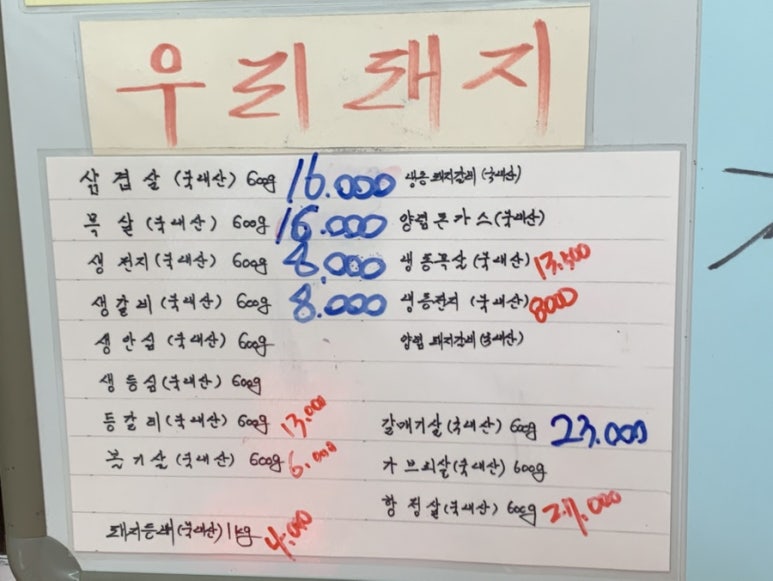 우리돼지
삼겹살 (국내산) 600g 16.000
목살 (국내산) 600g 16.000
생전지 (국내산) 600g 8.000
생갈비 (국내산) 600g 8.000
생안심 (국내산) 600g
생등심 (국내산) 600g
등갈비 (국내산) 600g 13.000
볼기살 (국내산) 600g 6.000
돼지등뼈 (국내산) 1kg 4.000
냉동돼지갈비 (국내산)
양념돈가스 (국내산)
냉동목살 (국내산) 13.500
냉동전지 (국내산) 8000
양념돼지갈비 (국내산)
갈매기살 (국내산) 600g 23.000
가브리살 (국내산) 600g
항정살 (국내산) 600g